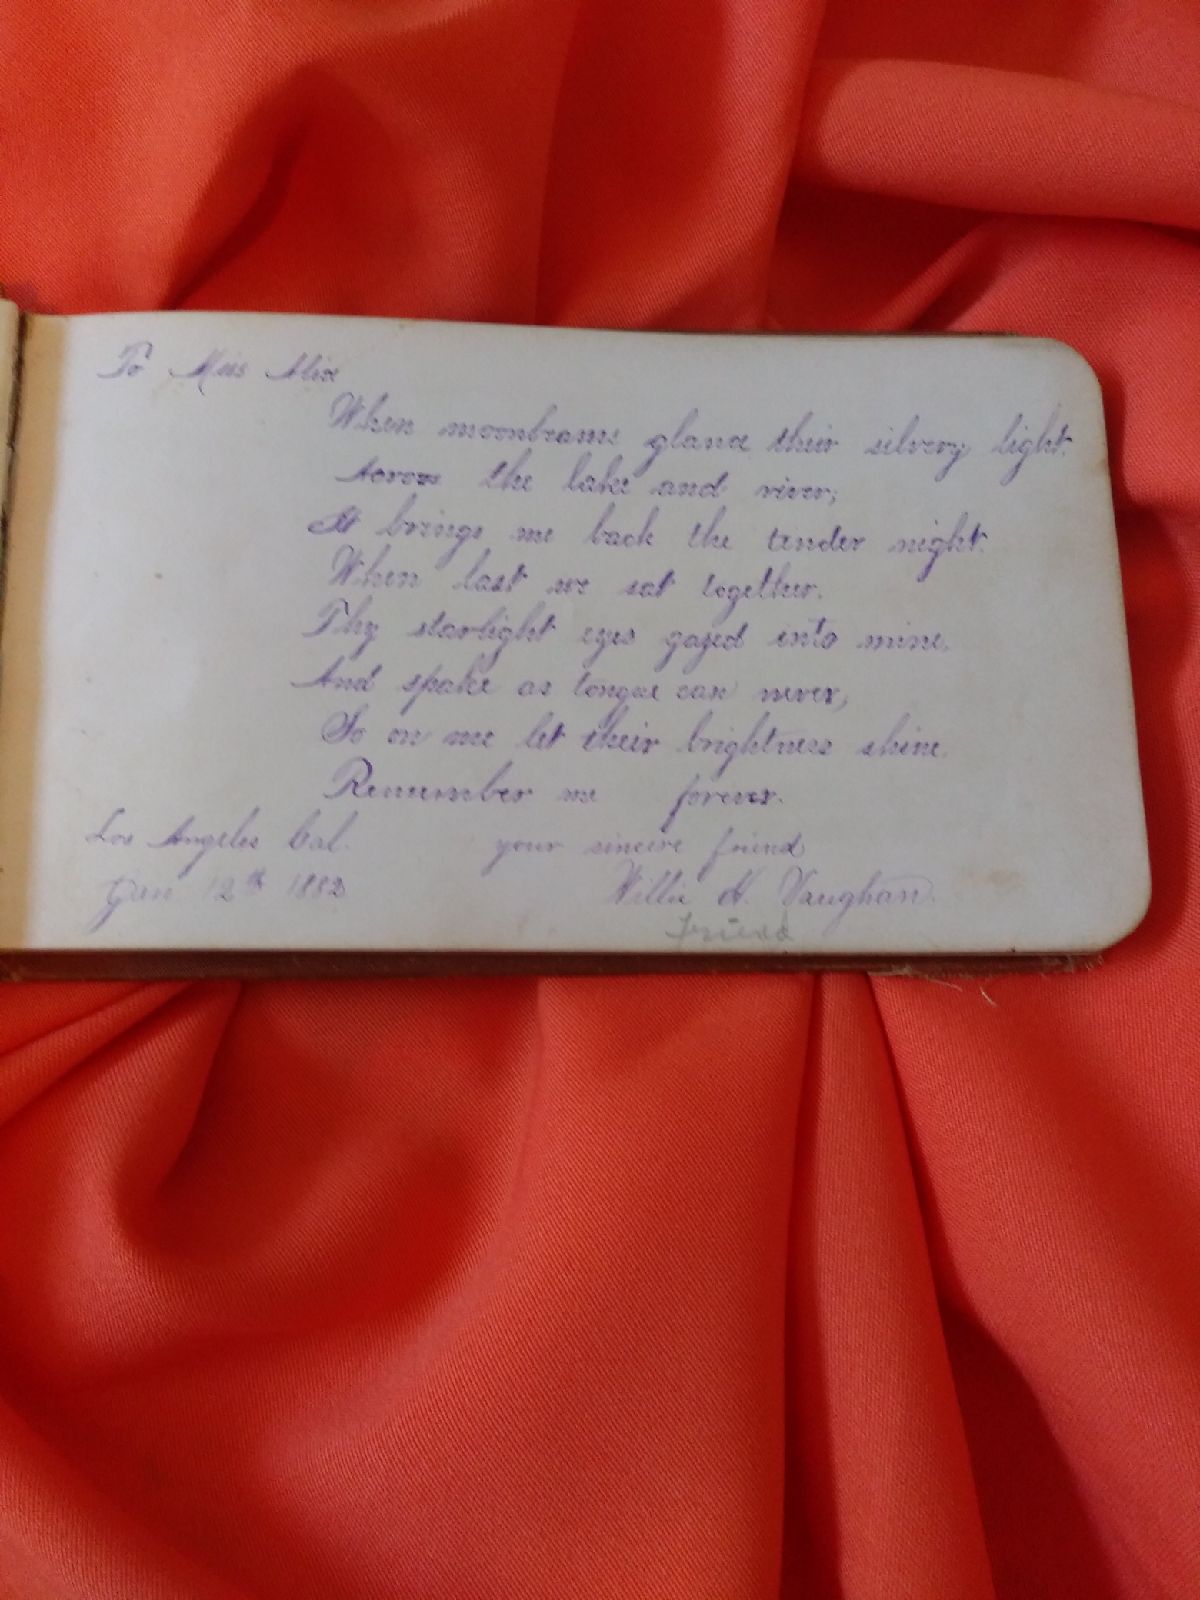 To Miss Alice
When moonbeams glance their silvery light.
Across the lake and river;
It brings me back the tender night.
When last we sat together.
Thy starlight eyes gazed into mine.
And spake as tongue can never,
So on me let their brightness shine.
Remember me forever.
Los Angeles Cal. your sincere friend
Jan 12th 1882 Willie H. Vaughan.
Friend